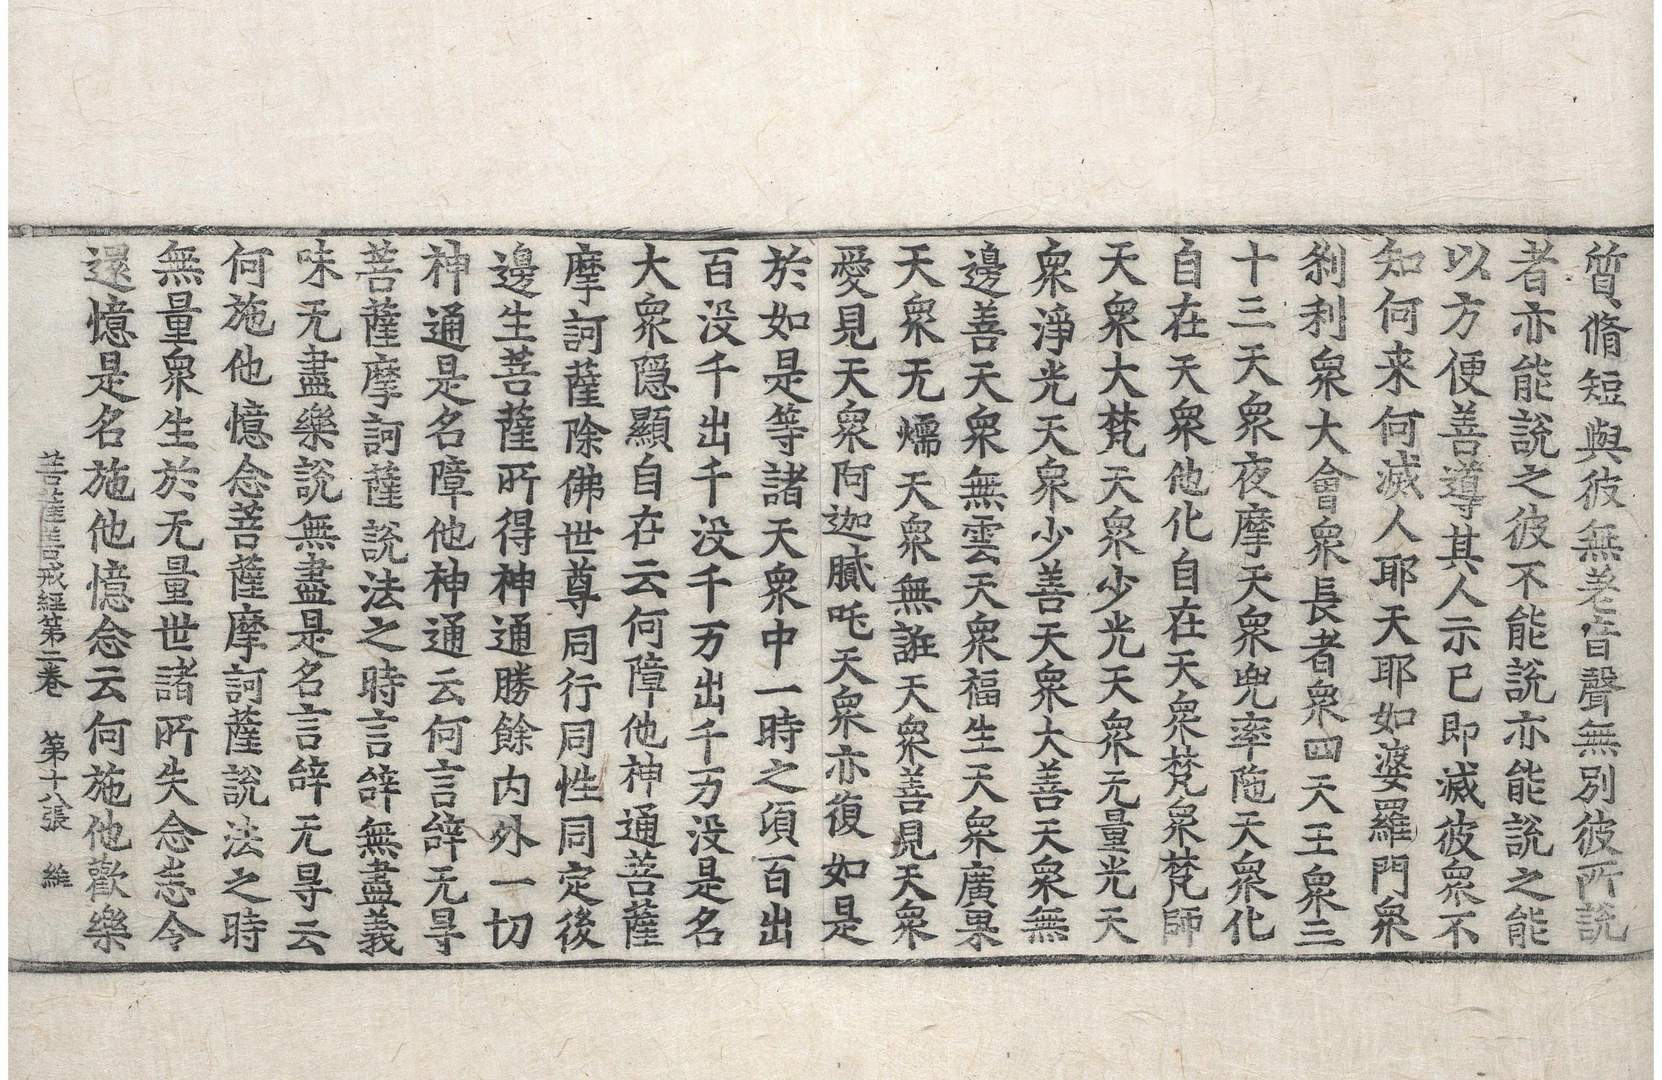 質脩短與彼無差音聲無別彼所説
者亦能説之彼不能説亦能説之能
以方便善導其人示已即滅彼衆不
知何来何滅人耶天耶如婆羅門衆
刹利衆大會衆長者衆四天王衆三
十三天衆夜摩天衆兜率陁天衆化
自在天衆他化自在天衆梵衆梵師
天衆大梵天衆少光天衆无量光天
衆淨光天衆少善天衆大善天衆無
邊善天衆無雲天衆福生天衆廣果
天衆无燸天衆無誑天衆善見天衆
愛見天衆阿迦膩吒天衆亦復如是
於如是等諸天衆中一時之湏百出
百没千出千没千万出千万没是名
大衆隠顯自在云何障他神通菩薩
摩訶薩除佛世尊同行同性同定後
邊生菩薩所得神通勝餘内外一切
神通是名障他神通云何言辝无㝵
菩薩摩訶薩説法之時言辝無盡義
味无盡樂説無盡是名言辝无㝵云
何施他憶念菩薩摩訶薩説法之時
無量衆生於无量世諸所失念恙令
還憶是名施他憶念云何施他歡樂
菩薩善戒經第二卷　第十八張　維